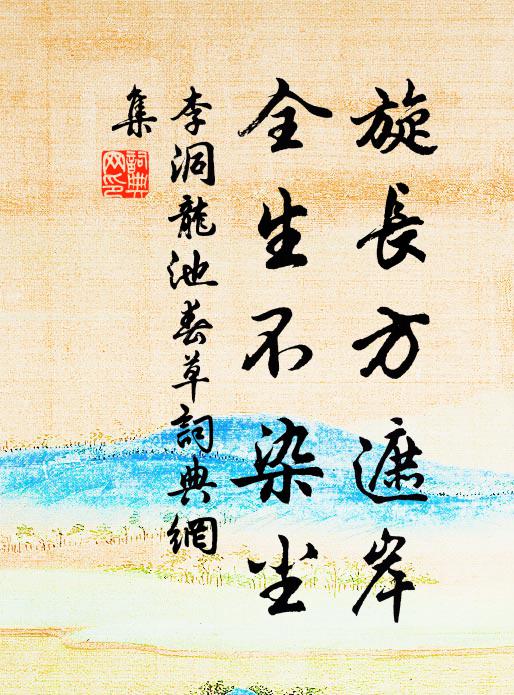 旋長方遮岸
全生不染尘
李洞龍池春草詞典網
集
詞典
网印